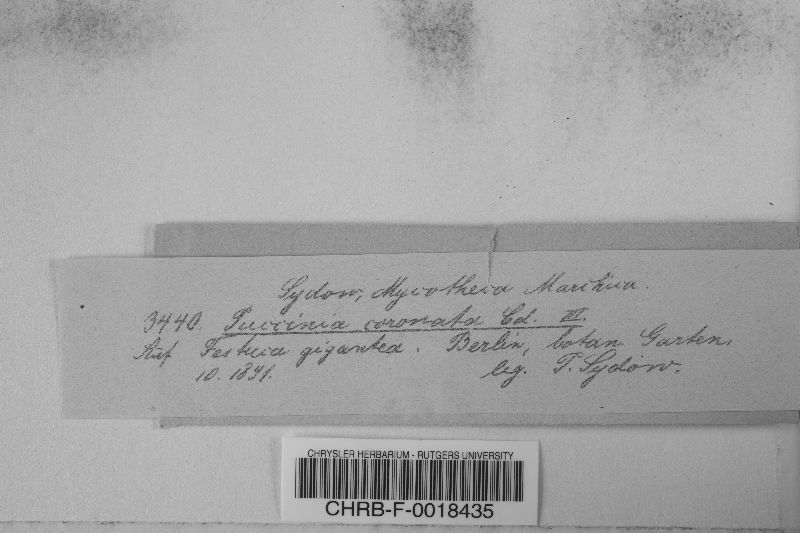 Sydow, Mycotheca Marchica.
3440. Puccinia coronata Cd. III.
Auf Festuca gigantea. Berlin, botan. Garten.
10. 1891. leg. P. Sydow.
CHRYSLER HERBARIUM - RUTGERS UNIVERSITY
CHRB-F-0018435